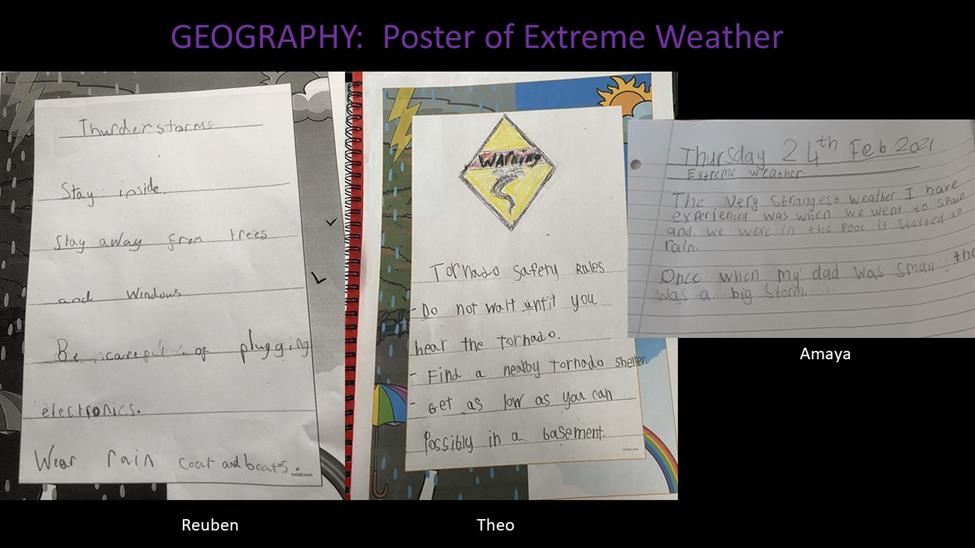 GEOGRAPHY: Poster of Extreme Weather
Thunderstorms
Stay inside.
Stay away from trees
and windows
Be careful of plugging
electronics.
Wear rain coat and boats.
Reuben
WARNING
Tornado Safety Rules
- Do not wait until you
hear the tornado.
- Find a nealby tornado shelter.
- Get as low as you can
possibly in a basement.
Theo
Thursday 24th Feb 2021
Extreme weather.
The very strangest weather I have
experiencd was when we went to Spain
and we were in the pool it started to
rain.
Once when my dad was small the
was a big storm.
Amaya